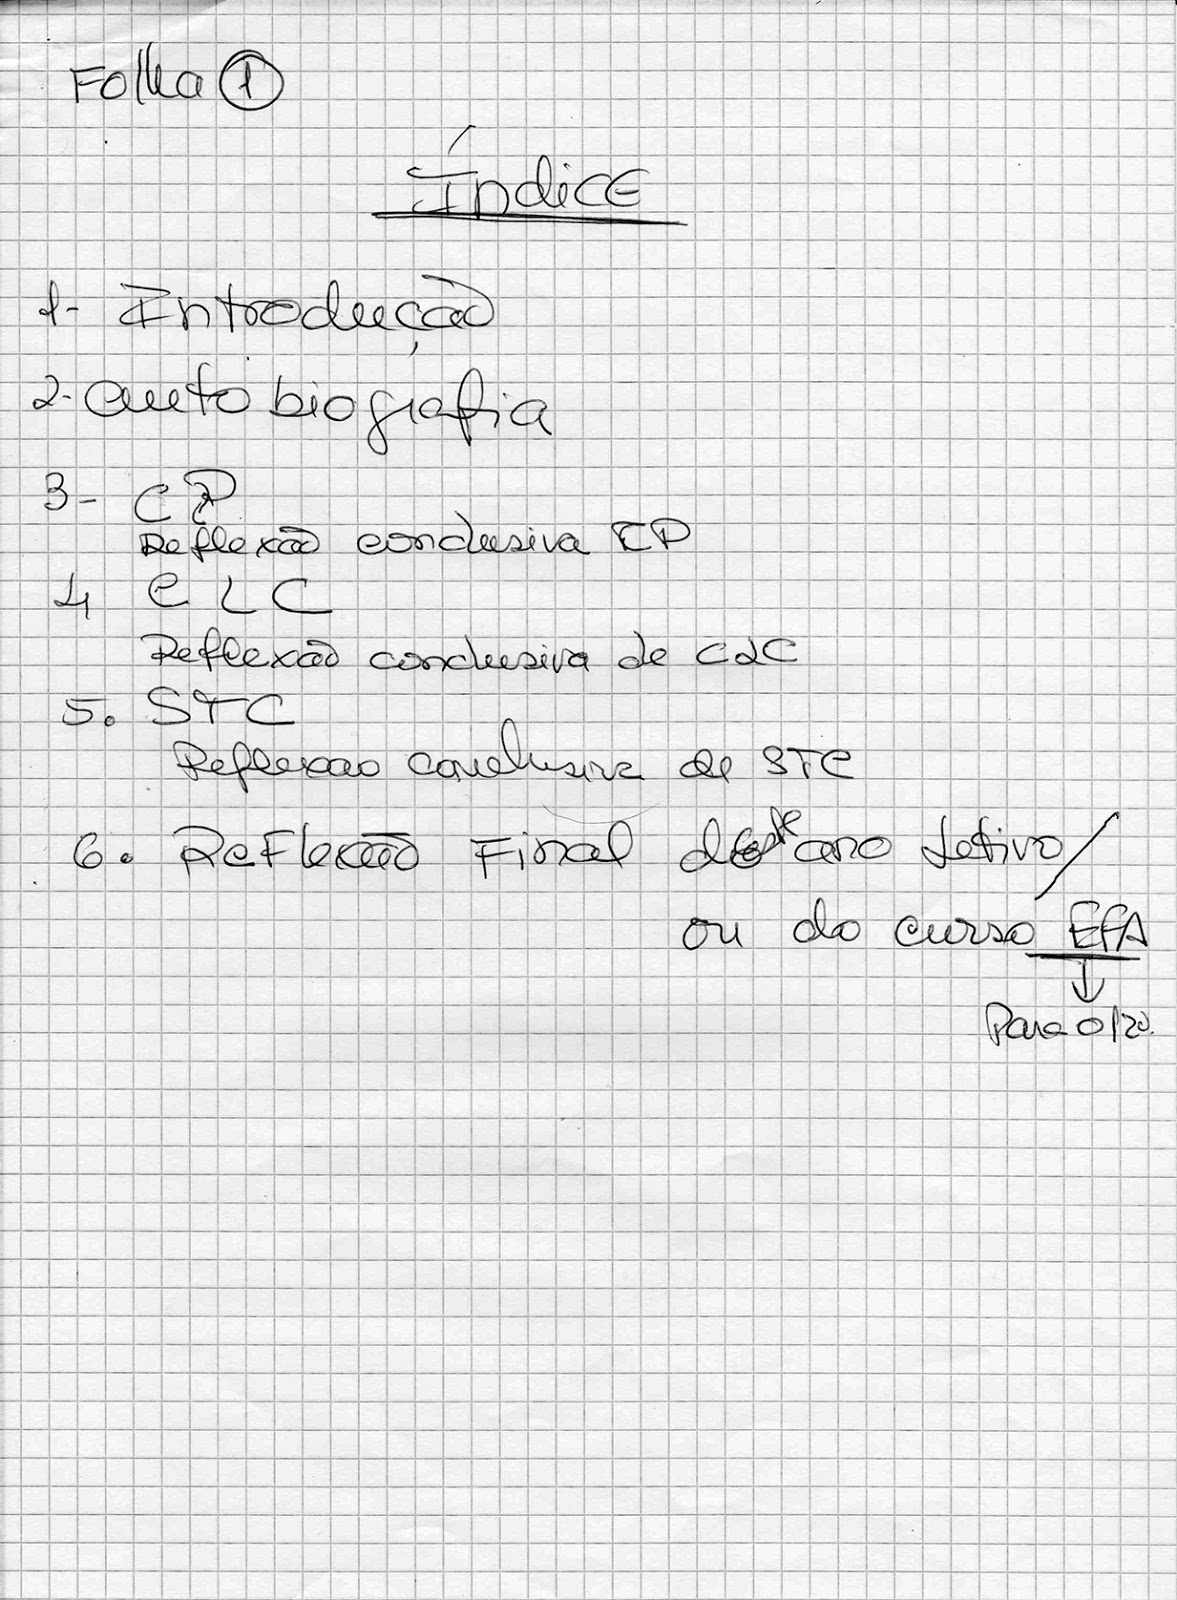 Folha 1
Índice
1- Introdução
2- autobiografia
3- CP
Reflexão conclusiva CP
4 CLC
Reflexão conclusiva de CLC
5. STC
Reflexao conclusiva de STC
6. Reflexão Final deste ano letivo/
ou do curso EFA
Para o